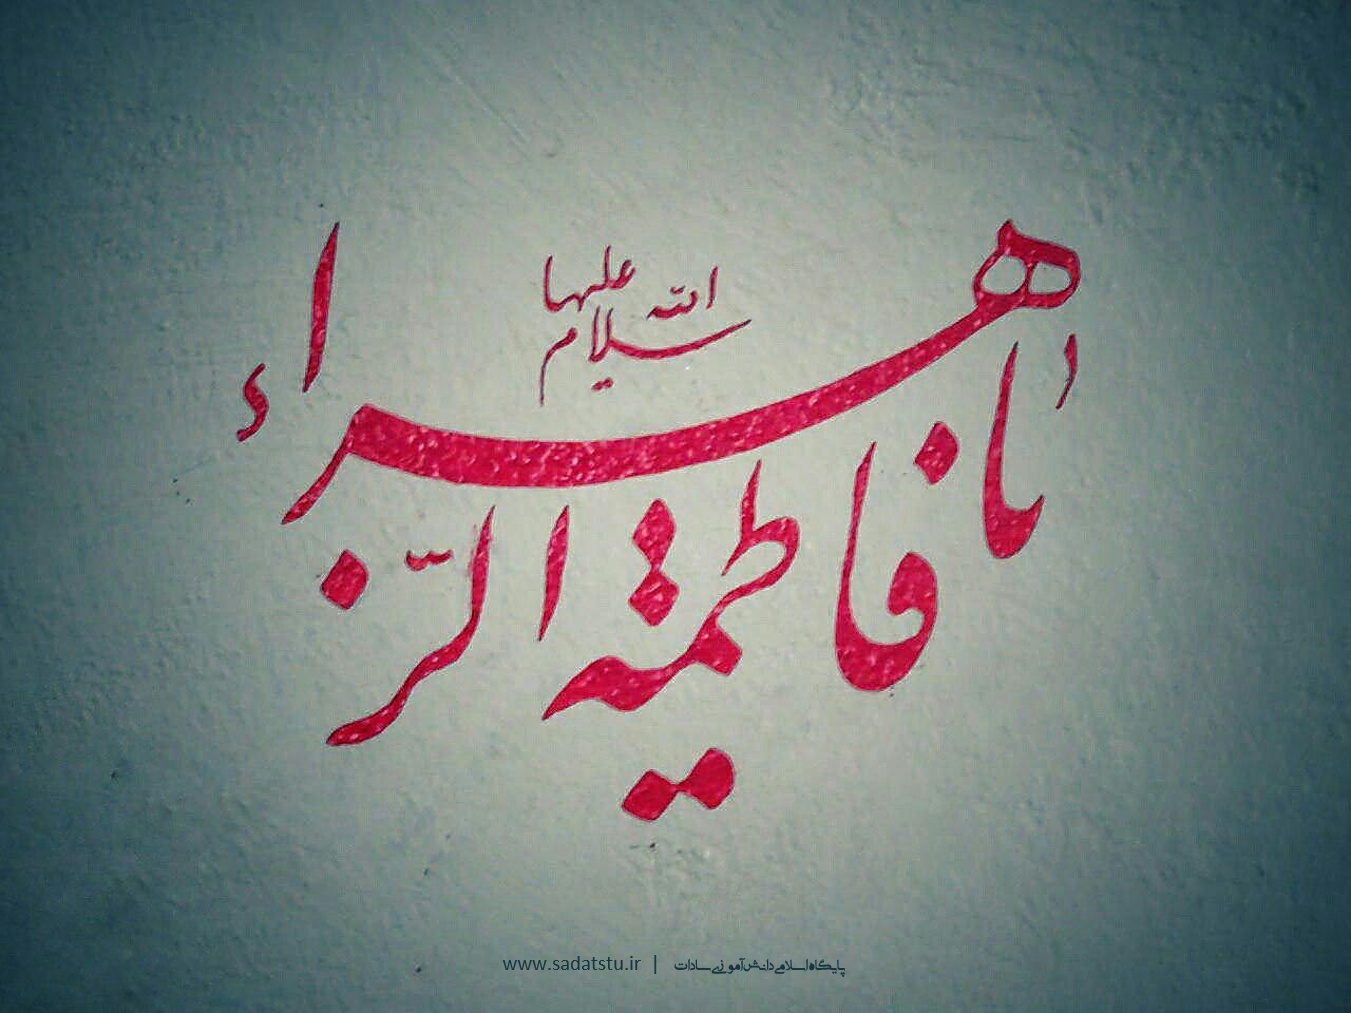 یا فاطمة الزّهراء
سلام الله علیها
www.sadatstu.ir | پایگاه اسلامی دانش آموزی سادات